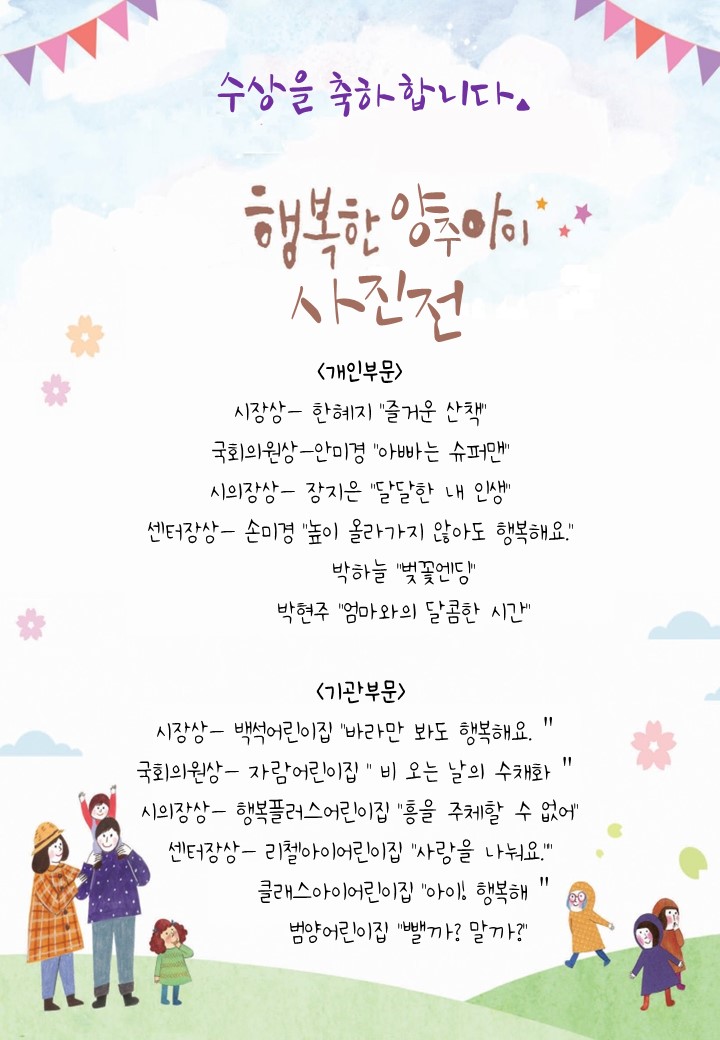 수상을 축하합니다.
행복한 양주아이
사진전
<개인부문>
시장상- 한혜지 "즐거운 산책"
국회의원상-안미경 "아빠는 슈퍼맨"
시의장상- 장지은 "달달한 내 인생"
센터장상- 손미경 "높이 올라가지 않아도 행복해요."
박하늘 "벚꽃엔딩"
박현주 "엄마와의 달콤한 시간"
<기관부문>
시장상- 백석어린이집 "바라만 봐도 행복해요. "
국회의원상- 자람어린이집 " 비 오는 날의 수채화 "
시의장상- 행복플러스어린이집 "흥을 주체할 수 없어"
센터장상- 리첼아이어린이집 "사랑을 나눠요.""
클래스아이어린이집 "아이! 행복해 "
범양어린이집 "뺄까? 말까?"